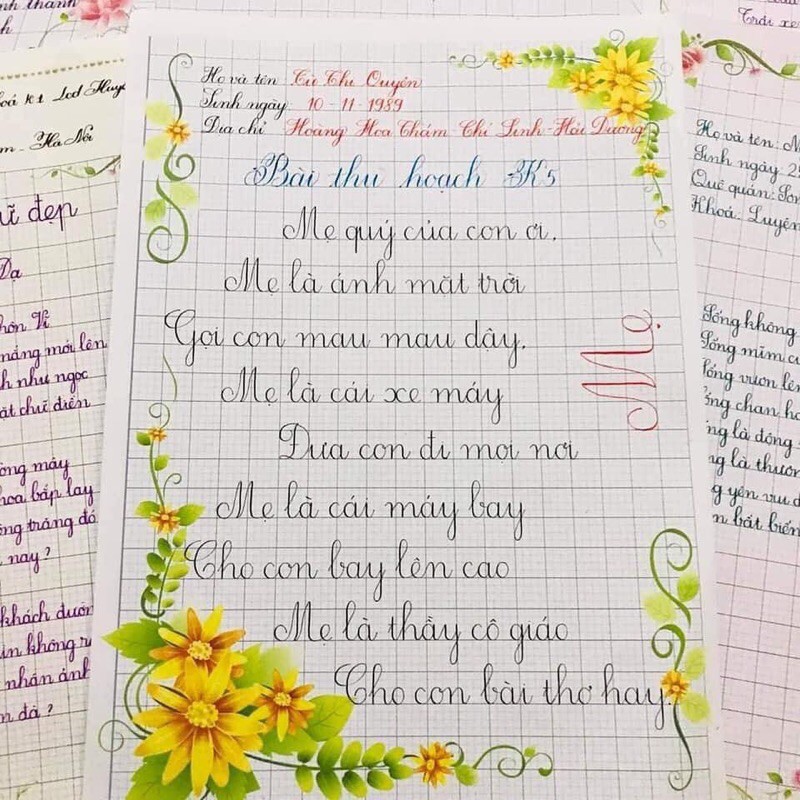 Họ và tên Từ Thị Quyên
Sinh ngày 10-11-1989
Địa chỉ Hoàng Hoa Thám-Chí Linh-Hải Dương
Bài thu hoạch K5
Mẹ quý của con ơi.
Mẹ là ánh mặt trời
Gọi con mau mau dậy.
Mẹ là cái xe máy
Đưa con đi mọi nơi
Mẹ là cái máy bay
Cho con bay lên cao
Mẹ là thầy cô giáo
Cho con bài thơ hay.
Mẹ
Hà Nội
đẹp
Dạ
Vĩ
nắng mới lên
như ngọc
chữ điền
máy
hoa bắp lay
trăng đó
nay?
khách đường
không
nhân ảnh
đà?
Họ và tên:
Sinh ngày: 2
Quê quán:
Khoá: Luyện
Sống không
Sống mỉm
vươn lên
chan
là đông
là thương
yên
bất biến